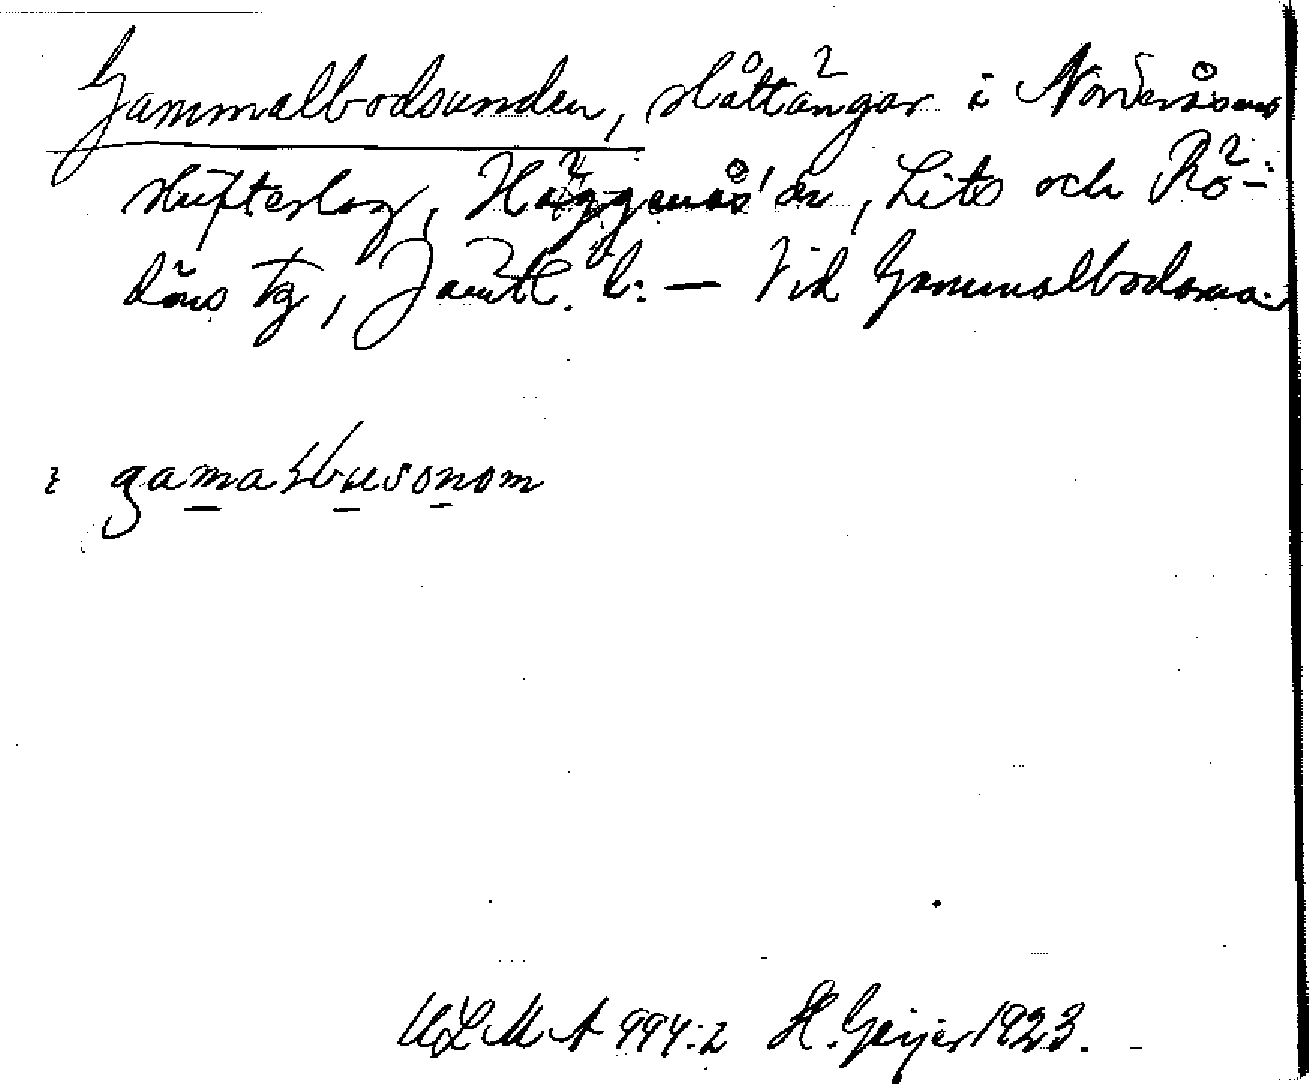 Gammalbodsunden, slåttängar i Norderåsens
skifteslag, Häggenås' sn, Lits och Rö-
döns tg, Jämtl. l: — Vid Gammalbodarna
i gamaɫbusonom
ULMA 994:2 H. Geijer 1923.